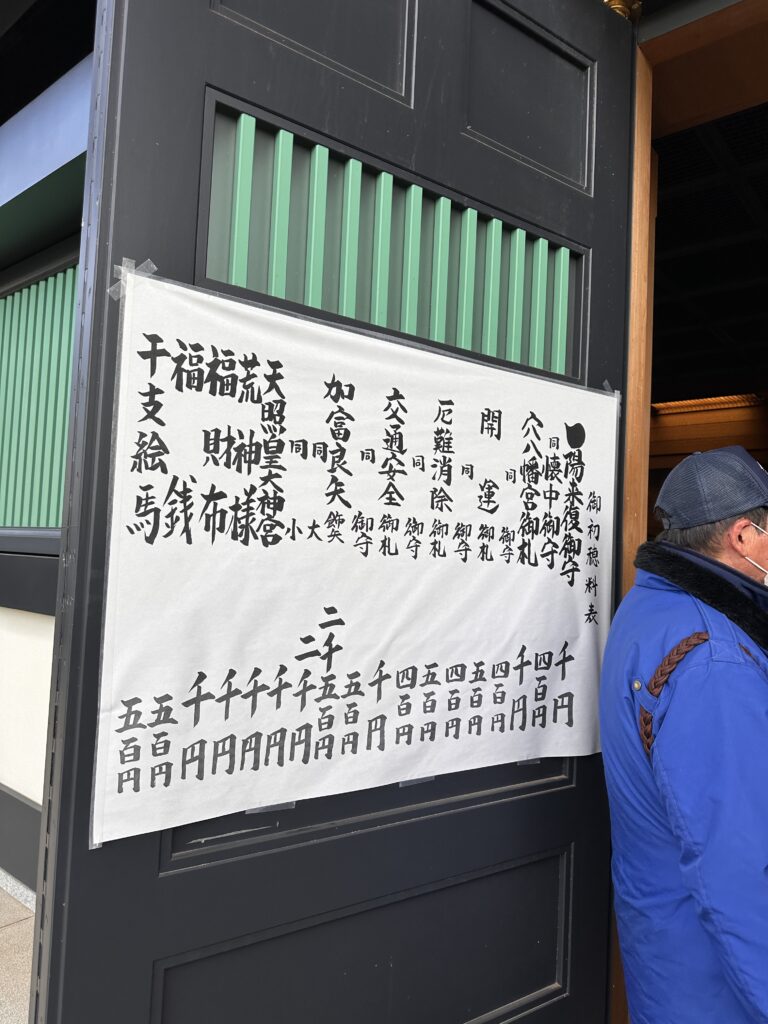 御初穂料表
●陽来復御守 千円
同懐中御守 四百円
穴八幡宮御札 千円
同 御守 四百円
開運 御札 五百円
同 御守 四百円
厄難消除 御札 五百円
同 御守 四百円
交通安全 御札 千円
同 御守 五百円
加富良矢 飾矢 二千五百円
同 大 二千円
同 小 千円
天照皇大神宮 千円
荒神様 千円
福財布 千円
福銭 五百円
干支絵馬 五百円